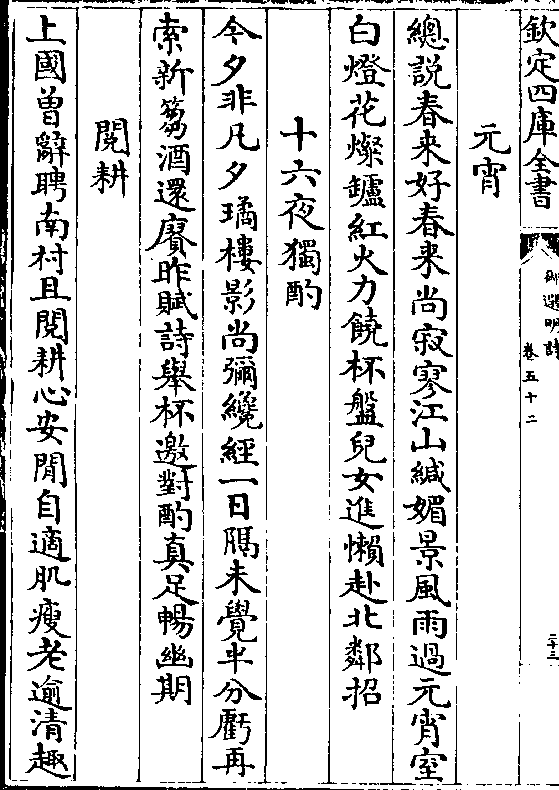 欽定四庫全書
御選明詩
卷五十二
二十三
元宵
總說春来好春来尚寂寥江山緘媚景風雨過元宵室
白燈花燦鑪紅火力饒杯盤兒女進懶赴北鄰招
十六夜獨酌
今夕非凡夕璚樓影尚彌纔經一日隔未覺半分虧再
索新篘酒還賡昨賦詩舉杯邀對酌真足暢幽期
閱耕
上國曾辭聘南村且閱耕心安閒自適肌瘦老逾清趣